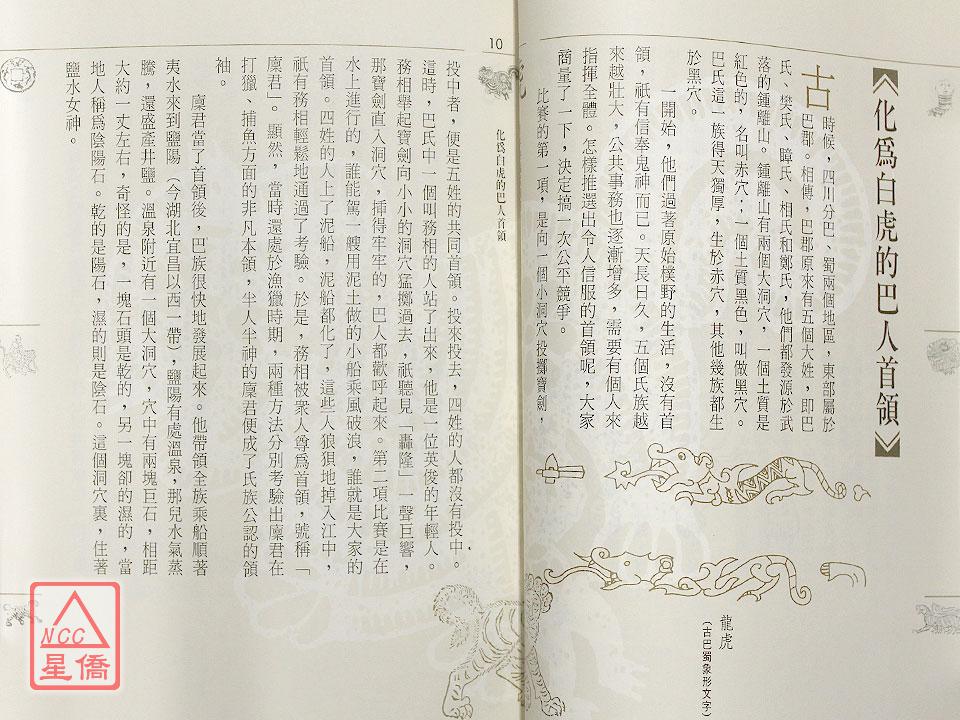 《化爲白虎的巴人首領》
古時候，四川分巴、蜀兩個地區，東部屬於
巴郡。相傳，巴郡原來有五個大姓，即巴
氏、樊氏、瞫氏、相氏和鄭氏，他們都發源於武
落的鍾離山。鍾離山有兩個大洞穴，一個土質是
紅色的，名叫赤穴；一個土質黑色，叫做黑穴。
巴氏這一族得天獨厚，生於赤穴，其他幾族都生
於黑穴。
一開始，他們過著原始樸野的生活，沒有首
領，祇有信奉鬼神而已。天長日久，五個氏族越
來越壯大，公共事務也逐漸增多，需要有個人來
指揮全體。怎樣推選出令人信服的首領呢，大家
商量了一下，決定搞一次公平競爭。
比賽的第一項，是向一個小洞穴投擲寶劍，
龍虎
（古巴蜀象形文字）
10
化爲白虎的巴人首領
投中者，便是五姓的共同首領。投來投去，四姓的人都沒有投中。
這時，巴氏中一個叫務相的人站了出來，他是一位英俊的年輕人。
務相舉起寶劍向小小的洞穴猛擲過去，祇聽見「轟隆」一聲巨響，
那寶劍直入洞穴，揷得牢牢的，巴人都歡呼起來。第二項比賽是在
水上進行的，誰能駕一艘用泥土做的小船乘風破浪，誰就是大家的
首領。四姓的人上了泥船，泥船都化了，這些人狼狽地掉入江中，
祇有務相輕鬆地通過了考驗。於是，務相被衆人尊爲首領，號稱「
廩君」。顯然，當時還處於漁獵時期，兩種方法分別考驗出廩君在
打獵、捕魚方面的非凡本領，半人半神的廩君便成了氏族公認的領
袖。
廩君當了首領後，巴族很快地發展起來。他帶領全族乘船順著
夷水來到鹽陽（今湖北宜昌以西一帶），鹽陽有處溫泉，那兒水氣蒸
騰，還盛產井鹽。溫泉附近有一個大洞穴，穴中有兩塊巨石，相距
大約一丈左右，奇怪的是，一塊石頭是乾的，另一塊卻的濕的，當
地人稱爲陰陽石。乾的是陽石，濕的則是陰石。這個洞穴裏，住著
鹽水女神。
NCC
星僑